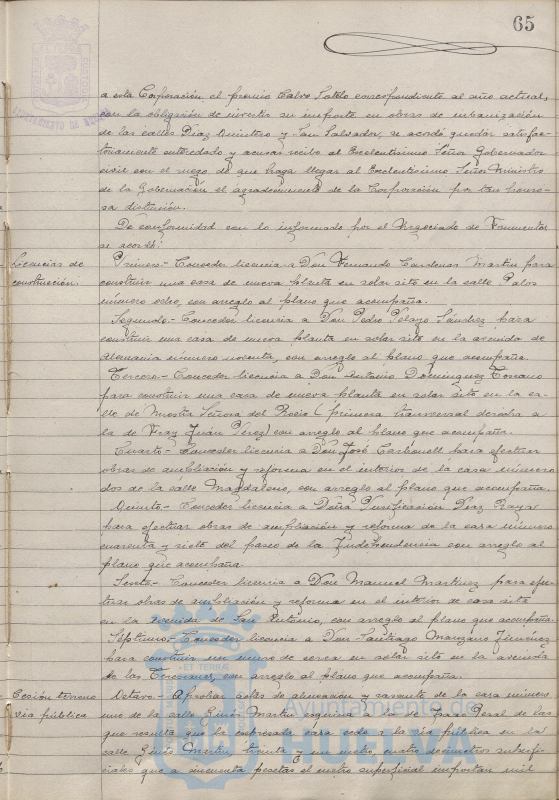 65
a esta Corporación el premio Calvo Sotelo correspondiente al año actual,
con la obligación de invertir su importe en obras de urbanización
de las calles Díaz Quintero y San Salvador, se acordó quedar satisfac-
toriamente enterado y acusar recibo al Excelentísimo Señor Gobernador
civil con el ruego de que haga llegar al Excelentísimo Señor Ministro
de la Gobernación el agradecimiento de la Corporación por tan honro-
sa distinción.
De conformidad con lo informado por el Negociado de Fomento
se acordó:
Licencias de
construcción.
Primero.- Conceder licencia a Don Fernando Cardenas Martin para
construir una casa de nueva planta en solar sito en la calle Palos
número ocho, con arreglo al plano que acompaña.
Segundo.- Conceder licencia a Don Pedro Sánchez para
construir una casa de nueva planta en solar sito en la avenida de
Alemania número noventa, con arreglo al plano que acompaña.
Tercero.- Conceder licencia a Don Antonio Dominguez Toscano
para construir una casa de nueva planta en solar sito en la ca-
lle de Nuestra Señora del Rocio (primera transversal derecha a
la de Fray Juán Perez) con arreglo al plano que acompaña.
Cuarto.- Conceder licencia a Don José Carbonell para efectuar
obras de ampliación y reforma en el interior de la casa número
dos de la calle Magdalena, con arreglo al plano que acompaña.
Quinto.- Conceder licencia a Doña Purificación Diaz Raya
para efectuar obras de ampliación y reforma de la casa número
cuarenta y siete del paseo de la Independencia con arreglo al
plano que acompaña.
Sexto.- Conceder licencia a Don Manuel Martinez para efec-
tuar obras de ampliación y reforma en el interior de casa sita
en la Avenida de San Antonio, con arreglo al plano que acompaña.
Septimo.- Conceder licencia a Don Santiago Manzano Jiménez
para construir un muro de cerca en solar sito en la avenida
de las con arreglo al plano que acompaña.
Cesión terreno
vía pública
Octavo.- Aprobar actas de alineación y rasante de la casa número
uno de la calle Ginés Martin esquina a la de Isaac Peral de las
que resulta que la expresada casa cede a la vía pública en la
calle Ginés Martin treinta y un metro, cuatro decimetros superfi-
ciales que a cincuenta pesetas el metro superficial importan mil
ET TERRA
Ayuntamiento de
HUELVA